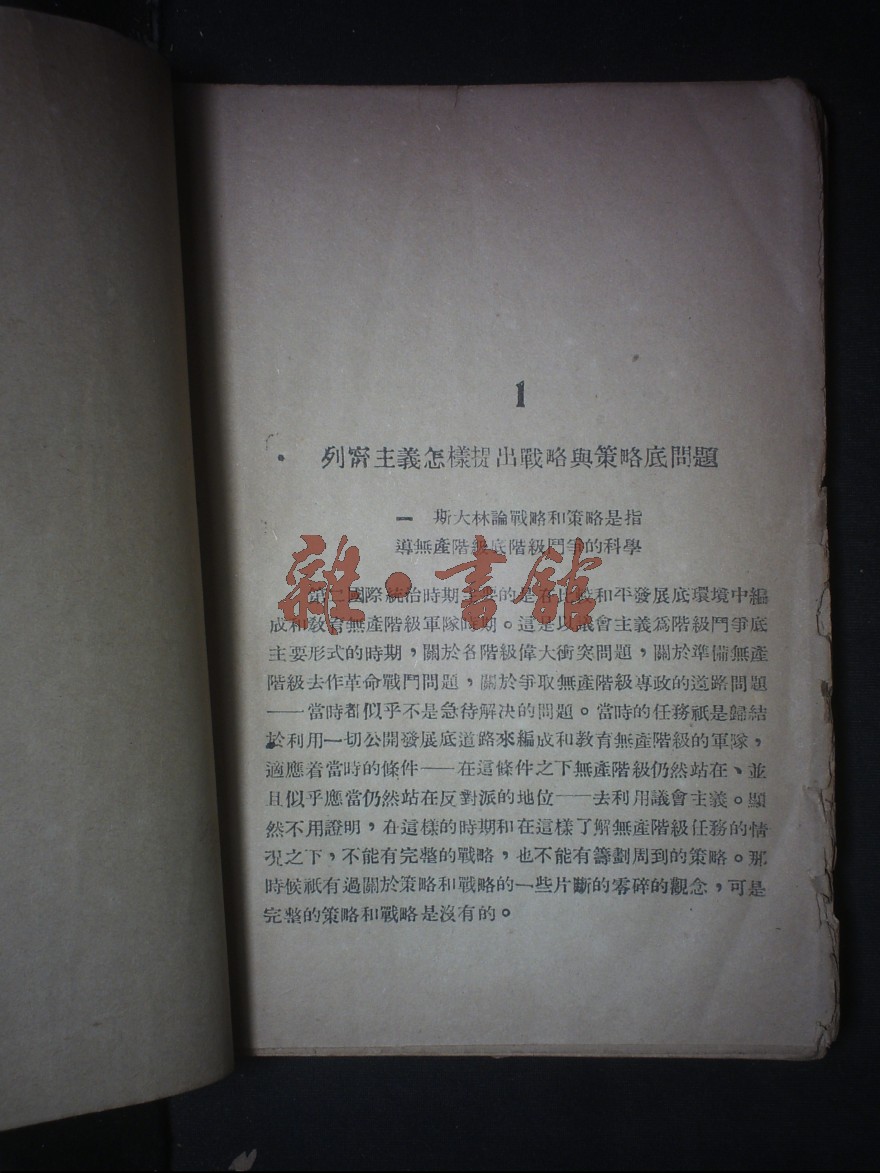 1
列甯主義怎樣提出戰略與策略底問題
一 斯大林論戰略和策略是指
導無產階級底階級鬥爭的科學
第二國際統治時期主要的是在比較和平發展底環境中編
成和教育無產階級軍隊時期。這是以議會主義爲階級鬥爭底
主要形式的時期，關於各階級偉大衝突問題，關於準備無產
階級去作革命戰鬥問題，關於爭取無產階級專政的道路問題
——當時都似乎不是急待解決的問題。當時的任務祇是歸結
於利用一切公開發展底道路來編成和教育無產階級的軍隊，
適應着當時的條件——在這條件之下無產階級仍然站在、並
且似乎應當仍然站在反對派的地位——去利用議會主義。顯
然不用證明，在這樣的時期和在這樣了解無產階級任務的情
况之下，不能有完整的戰略，也不能有籌劃周到的策略。那
時候祇有過關於策略和戰略的一些片斷的零碎的觀念，可是
完整的策略和戰略是沒有的。
雜·書館